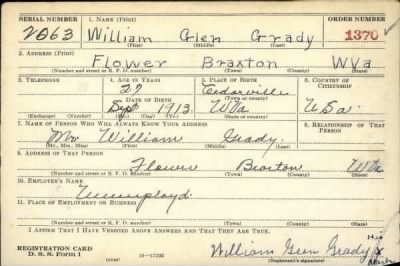 SERIAL NUMBER 1. NAME (Print) ORDER NUMBER
2063 William Glen Grady 1370
(First) (Middle) (Last)
2. ADDRESS (Print)
Flower Braxton WVa
(Number and street or R. F. D. number) (Town) (County) (State)
3. TELEPHONE 4. AGE IN YEARS 5. PLACE OF BIRTH 6. COUNTRY OF CITIZENSHIP
27 Cedarville USa.
DATE OF BIRTH (Town or county)
Sept 1913 WVa
(Exchange) (Number) (Mo.) (Day) (Yr.) (State or country)
7. NAME OF PERSON WHO WILL ALWAYS KNOW YOUR ADDRESS 8. RELATIONSHIP OF THAT PERSON
Mr William Grady
(Mr., Mrs., Miss) (First) (Middle) (Last)
9. ADDRESS OF THAT PERSON
Flower Braxton WVa
(Number and street or R. F. D. number) (Town) (County) (State)
10. EMPLOYER'S NAME
Unemployd
11. PLACE OF EMPLOYMENT OR BUSINESS
(Number and street or R. F. D. number) (Town) (County) (State)
I AFFIRM THAT I HAVE VERIFIED ABOVE ANSWERS AND THAT THEY ARE TRUE.
REGISTRATION CARD
D. S. S. Form 1 (over) 16—17105
William Glen Grady x
(Registrant's signature)